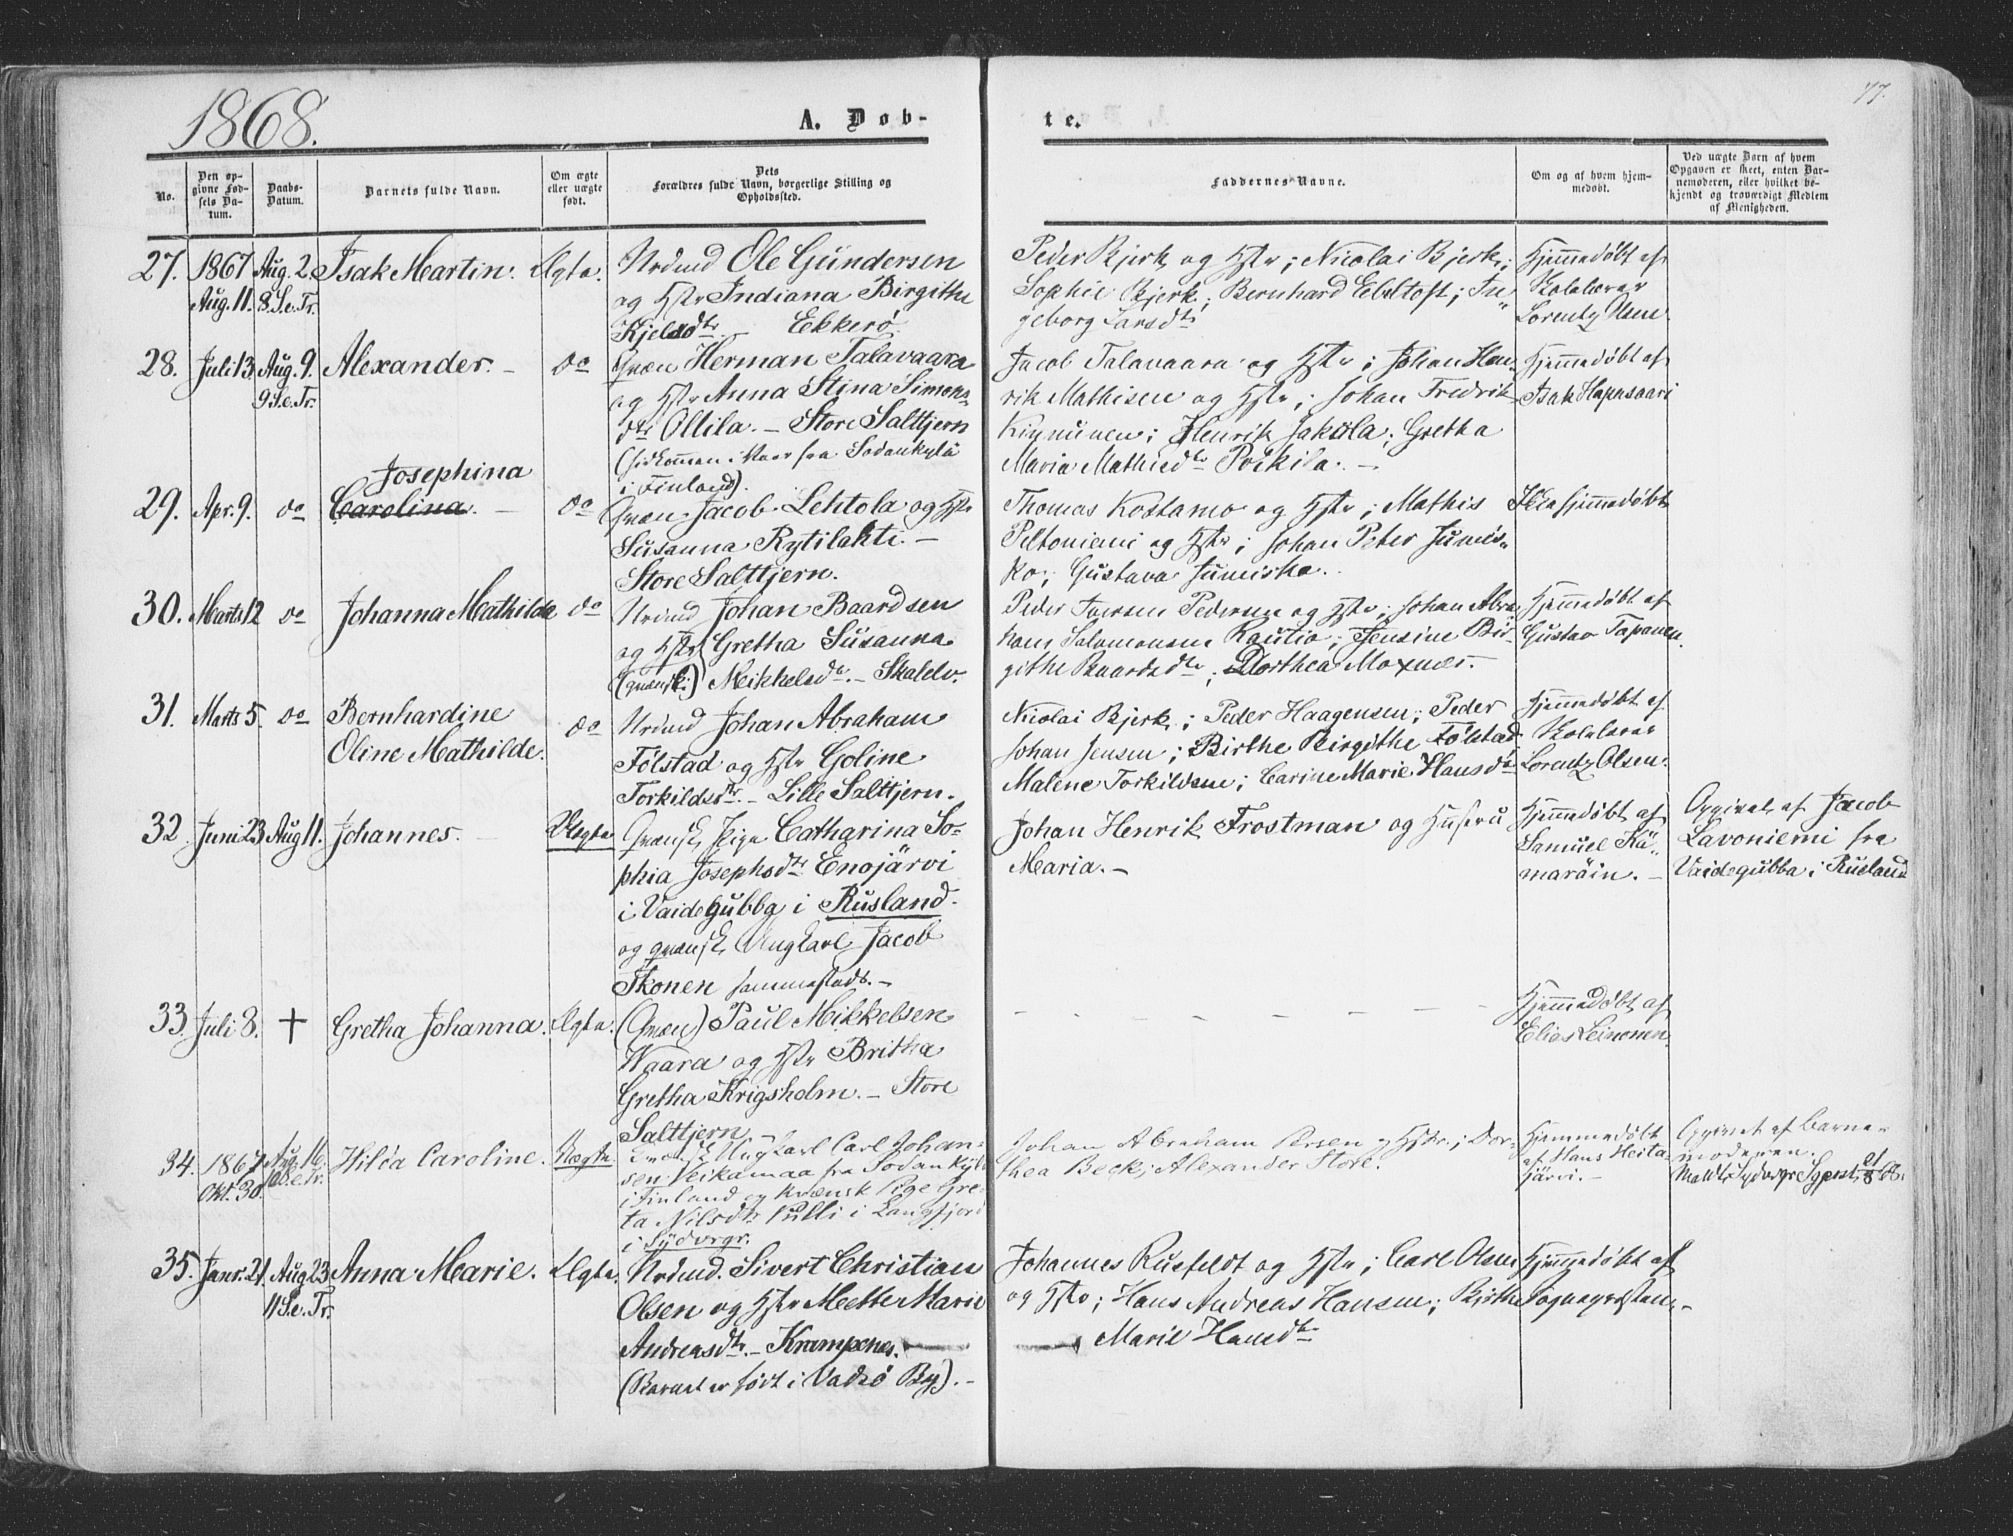 1868.
A. Døb-
te.
77.
No.
Den op-
givne Fød-
sels Da-
tum.
Daabs-
Datum.
Barnets fulde Navn.
Om ægte
eller uægte
født.
Dets
Forældres fulde Navn, borgerlige Stilling og
Opholdssted.
Faddernes Navne.
Om og af hvem hjem-
medøbt.
Ved uægte Børn af hvem
Opgaven er skeet, enten Bar-
nemoderen, eller hvilket be-
kjendt og troværdigt Medlem
af Menigheden.
27. 1867 Aug. 2 Isak Martin. Ægte. Nrdmd Ole Gundersen
Aug. 11. 8. S. e. Tr. og Hstr Indiana Birgithe
Kjelsdtr. — Ekkerø.
Peder Bjerk og Hstr; Nicolai Bjerk;
Sophie Bjerk; Bernhard Ebeltoft; In-
geborg Larsdtr
Hjemmedøbt af
Skolelærer
Lorentz Olsen
28. Juli 13 Aug. 9. Alexander. — do Qvæn Herman Talavaara
9 S. e. Tr. og Hstr Anna Stina Simons-
dtr Ollila. — Store Salttjern
(hidkommen i Vaar fra Sodankylä
i Finland).
Jacob Talavaara og Hstr; Johan Hen-
rik Mathisen og Hstr; Johan Fredrik
Kinnunen; Henrik Jakola. Gretha
Maria Mathisdtr Poikila. —
Hjemmedøbt af
Isak Hapesaari
Josephina
29. Apr. 9. do Carolina. — do Qvæn Jacob Lehtola og Hstr
Susanna Rytilahti. —
Store Salttjern.
Thomas Kostamo og Hstr; Mathis
Peltoniemi og Hstr; Johan Peter Jumis-
ko; Gustava Jumisko.
Ikke hjemmedøbt
30. Marts 12 do Johanna Mathilde do Nrdmd Johan Baardsen
og Hstr Gretha Susanna
(qvænsk) Mikkelsdtr. — Skaldv.
Peder Iversen Pedersen og Hstr; Johan Abra-
ham Salomonsen Rautio; Jensine Bir-
githe Baardsdtr; Dorthea Moxnæs. —
Hjemmedøbt af
Gustav Tapanen.
31. Marts 5. do Bernhardine do Nrdmd Johan Abraham
Oline Mathilde. Fölstad og Hstr Goline
Torkildsdtr. — Lille Salttjern.
Nicolai Bjerk; Peder Haagensen; Peder
Johan Jensen; Birthe Birgithe Fölstad
Malene Torkildsen; Carine Marie Hansdtr
Hjemmedøbt af
Skolelærer
Lorentz Olsen.
32. Juni 23 Aug 11. Johannes. — Uægte Qvænsk Pige Catharina So-
phia Josephsdtr Enojärvi
i Vaidegubba i Rusland.
og qvænsk Ungkarl Jacob
Ikonen sammesteds. —
Johan Henrik Frostman og Hustru
Maria. —
Hjemmedøbt af
Samuel Kä-
maräin. —
Opgivet af Jacob
Lavoniemi fra
Vaidegubba i Rusland
33. Juli 8. + Gretha Johanna. Ægte. (Qvæn) Paul Mikkelsen
Waara og Hstr Britha
Gretha Krigsholm. — Store
Salttjern —
Hjemmedøbt af
Elias Leinonen.
34. 1867 Aug 16 Hilda Caroline. Uægte. Kvænsk Ungkarl Carl Johan-
Okt. 30 10 S. e. Tr. sen Veikamaa fra Sodankylä
i Finland og kvænsk Pige Gre-
ta Nilsdtr Pulli i Langfjord
i Sydvrgr.
Johan Abraham Persen og Hstr.; Dor-
thea Beck; Alexander Store.
Hjemmedøbt
af Hans Heita-
järvi. —
Opgivet af Barne-
moderen.
35. Janr. 21. Aug 23. Anna Marie. Ægte. Nrdmd. Sivert Christian
11 S. e. Tr. Olsen og Hstr Mette Marie
Andreasdtr. — Krampenes.
(Barnet er født i Vadsö By). —
Johannes Rusfeldt og Hstr; Carl Olsen
og Hstr; Hans Andreas Hansen; Birthe
Marie Hansdtr
Hjemmedøbt af
Sognepræsten. —